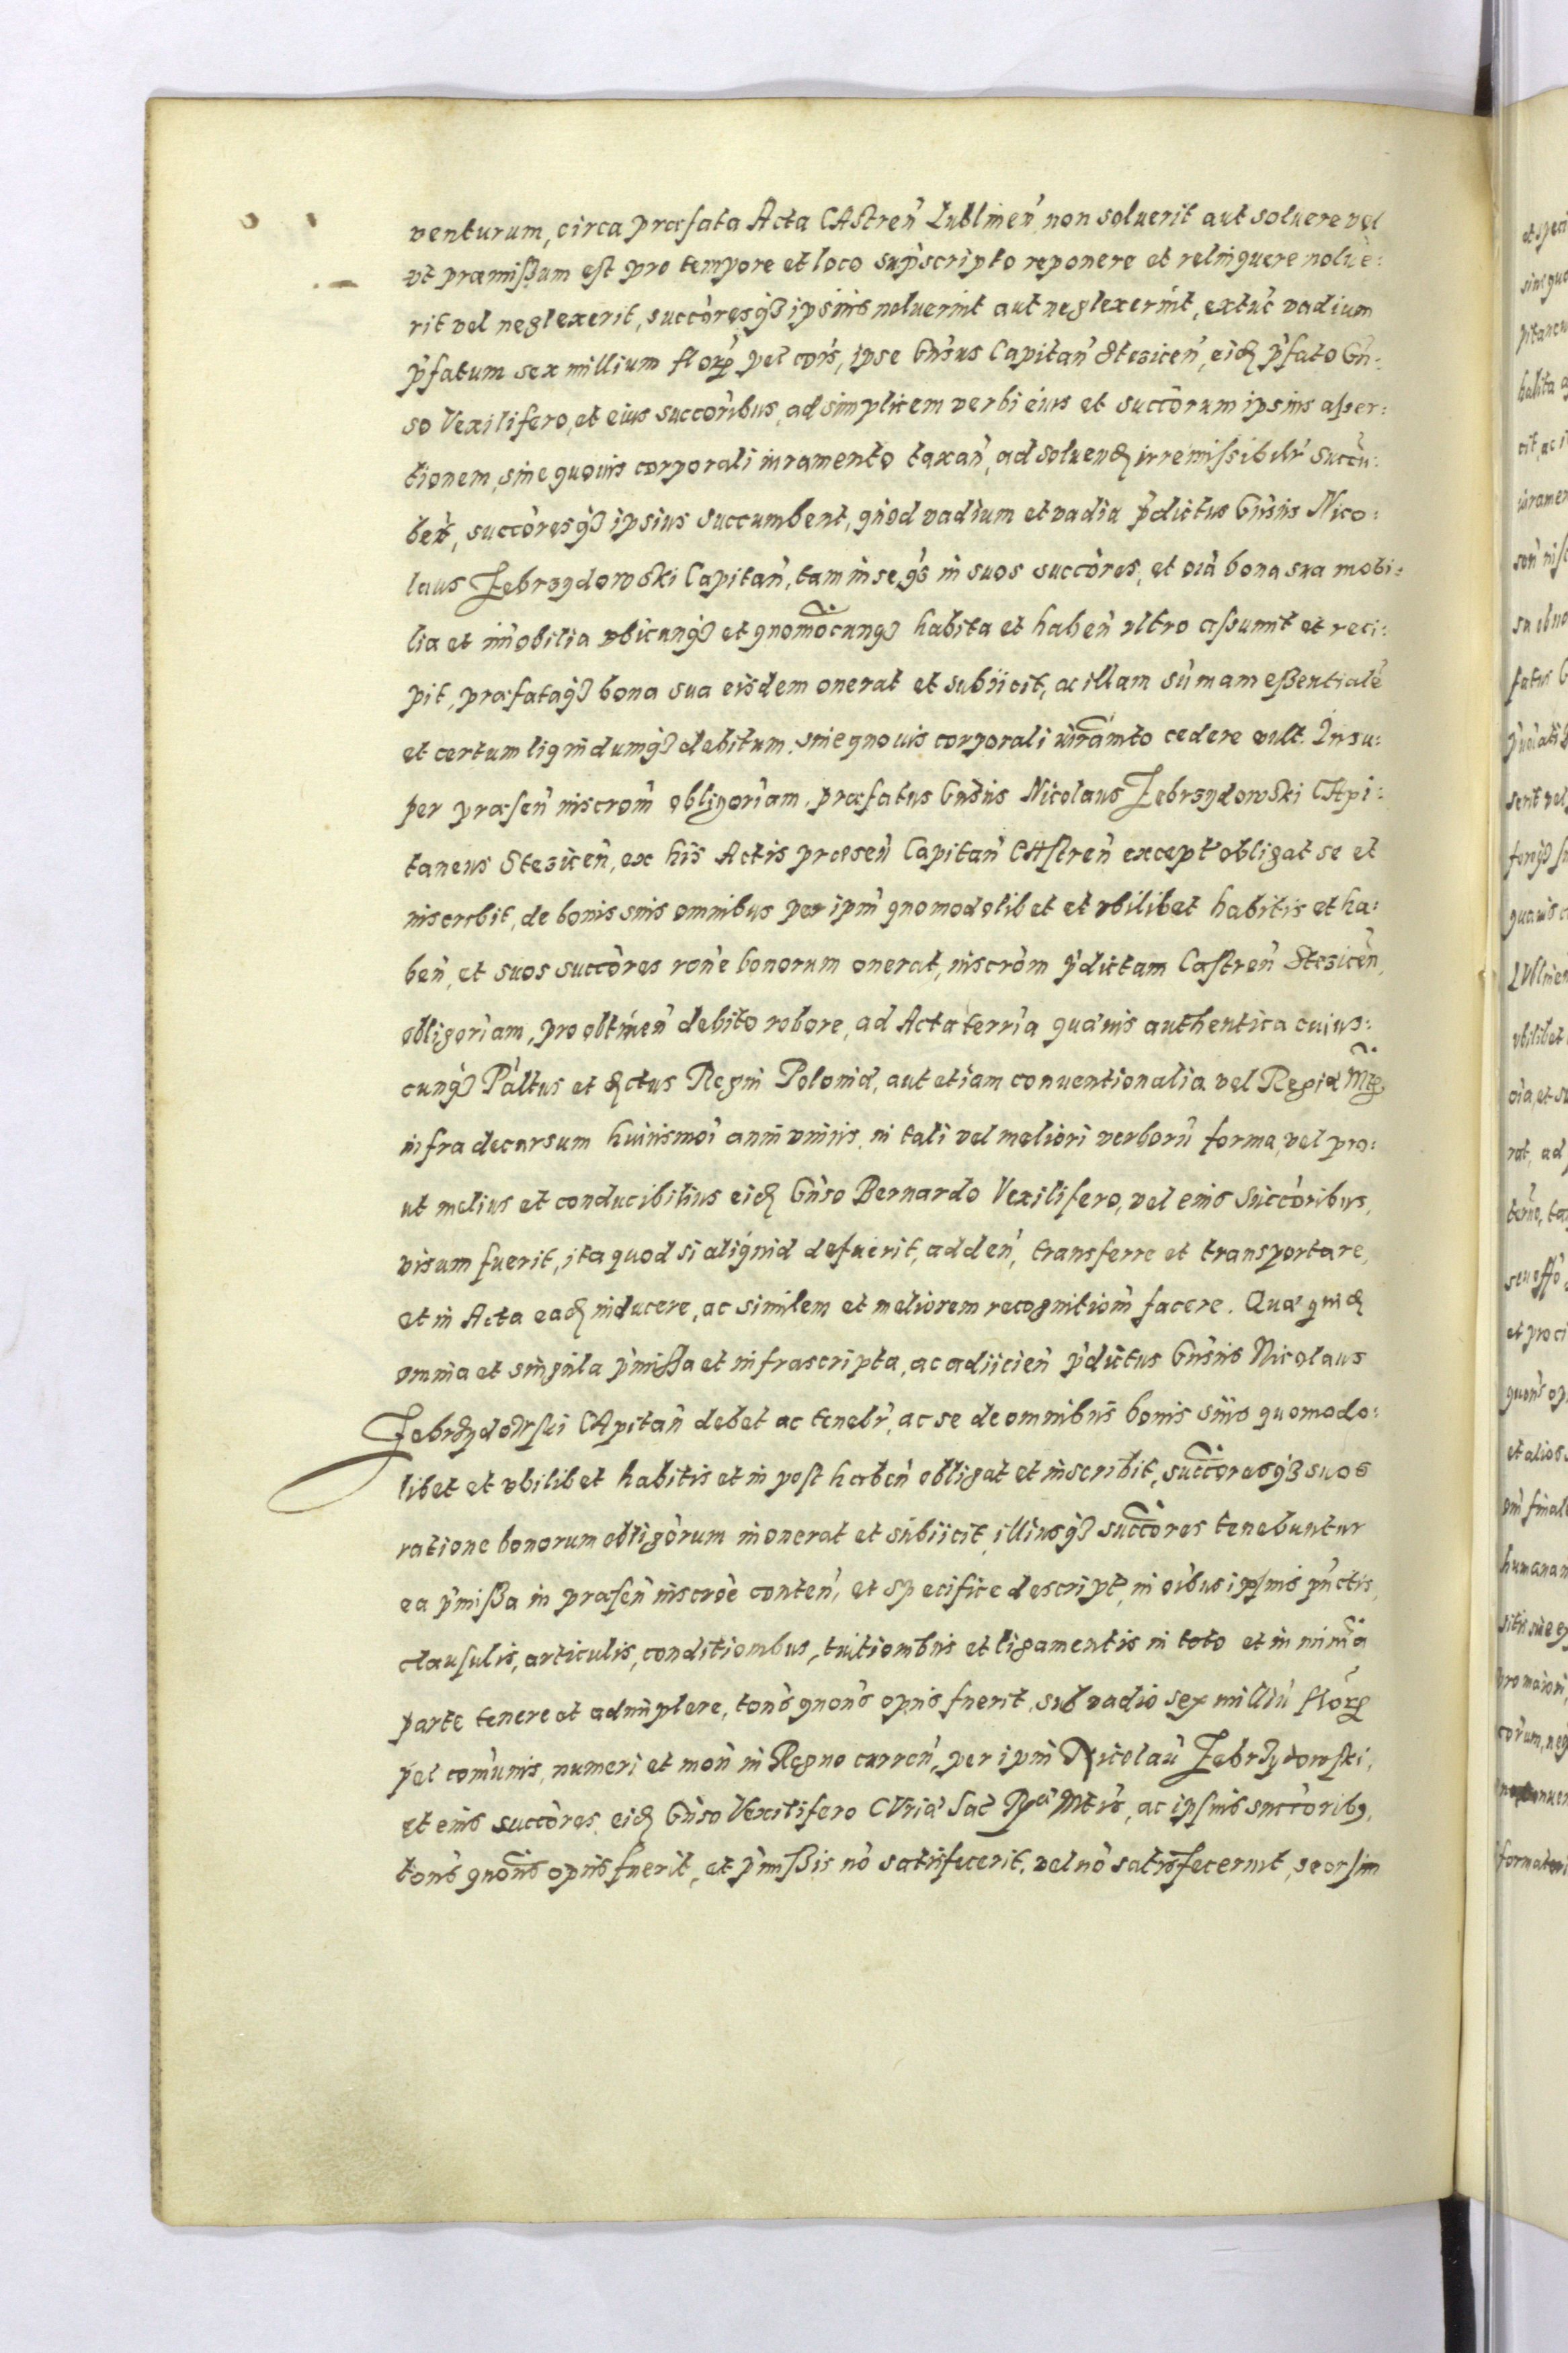 venturum, circa præfata Acta CAstreñ Lublineñ non soluerit aut soluere vel
vt præmißum est pro tempore et loco sup̃scripto reponere et relinquere nolue:
rit vel neglexerit, succ̃oresq3 ipsius noluerint aut neglexerint, extũc vadium
p̃fatum sex millium flor̃ pec̃ coĩs, ipse Gñsus Capitañ Steziceñ, eid̃ p̃fato Gñ:
so Vexilifero, et eius succ̃oribus, ad simplicem verbi eius et succ̃orum ipsius aßer:
tionem, sine quouis corporali iuramento taxañ, ad soluend̃ irremissibilr̃ succũ:
bet, succ̃oresq3 ipsius succumbent, quod vadium et vadia p̃dictus Gñsus Nico:
laus Zebrzydowski Capitañ, tam in se q̃3 in suos succ̃ores, et oĩa bona sua mobi:
lia et im̃obilia vbicunq3 et quomõcunq3 habita et habeñ vltro aßumit et reci:
pit, præfataq3 bona sua eisdem onerat et subiicit, ac illam sum̃am eßentialẽ
et certum liquidumq3 debitum. sine quouis corporali iuram̃to cedere vult. Insu:
per præseñ inscrom̃ obligoriam̃, præfatus Gñsus Nicolaus Zebrzydowski CApi:
taneus Steziceñ, ex his Actis præseñ Capitañ CAstreñ except̃ obligat se et
inscribit, de bonis suis omnibus per ipm̃ quomodolibet et vbilibet habitis et ha:
beñ, et suos succ̃ores rõne bonorum onerat, inscrõm p̃dictam Castreñ Steziceñ,
obligoriam̃, pro obtineñ debito robore, ad Acta terrĩa quæuis authentica cuius:
cunq3 Pal̃tus et d̃ctus Regni Poloniæ, aut etiam conuentionalia vel Regiæ Mt̃
infra decursum huiusmoĩ anni vnius, in tali vel meliori verborũ forma, vel pro:
ut melius et conducibilius eid̃ Gñso Bernardo Vexilifero, vel eius succ̃oribus,
visum fuerit, ita quod si aliquid defuerit, addeñ, transferre et transportare,
et in Acta ead̃ inducere, ac similem et meliorem recognitiom̃ facere. Quæ quid̃
omnia et singula p̃mißa et infrascripta, ac adiicieñ p̃dictus Gñsus Nicolaus
Zebrzydowski CApitañ debet ac tenebr̃, ac se de omnibus bonis suis quomodo:
libet et vbilibet habitis et in post habeñ obligat et inscribit, succ̃oresq3 suos
ratione bonorum obligõrum inonerat et subiicit, illiusq3 succ̃ores tenebuntur
ea p̃mißa in præseñ inscrõe conteñ, et specifice descript̃, in oĩbus ipsius pũctis,
clausulis, articulis, conditionibus, tuitionibus et ligamentis in toto et in minĩa
parte tenere et adimplere, tõns quõns opus fuerit, sub vadio sex milliũ flor̃
pec̃ com̃unis, numeri et moñ in Regno curreñ, per ipm̃ Nicolaũ Zebrzydowski,
et eius succ̃ores, eid̃ Gñso Vexilifero CUriæ Sac̃ Rgæ Mtis̃, ac ipsius succ̃orib9,
tõns quõns opus fuerit, et p̃mißis nõ satisfecerit, vel nõ satisfecerint, seorsim